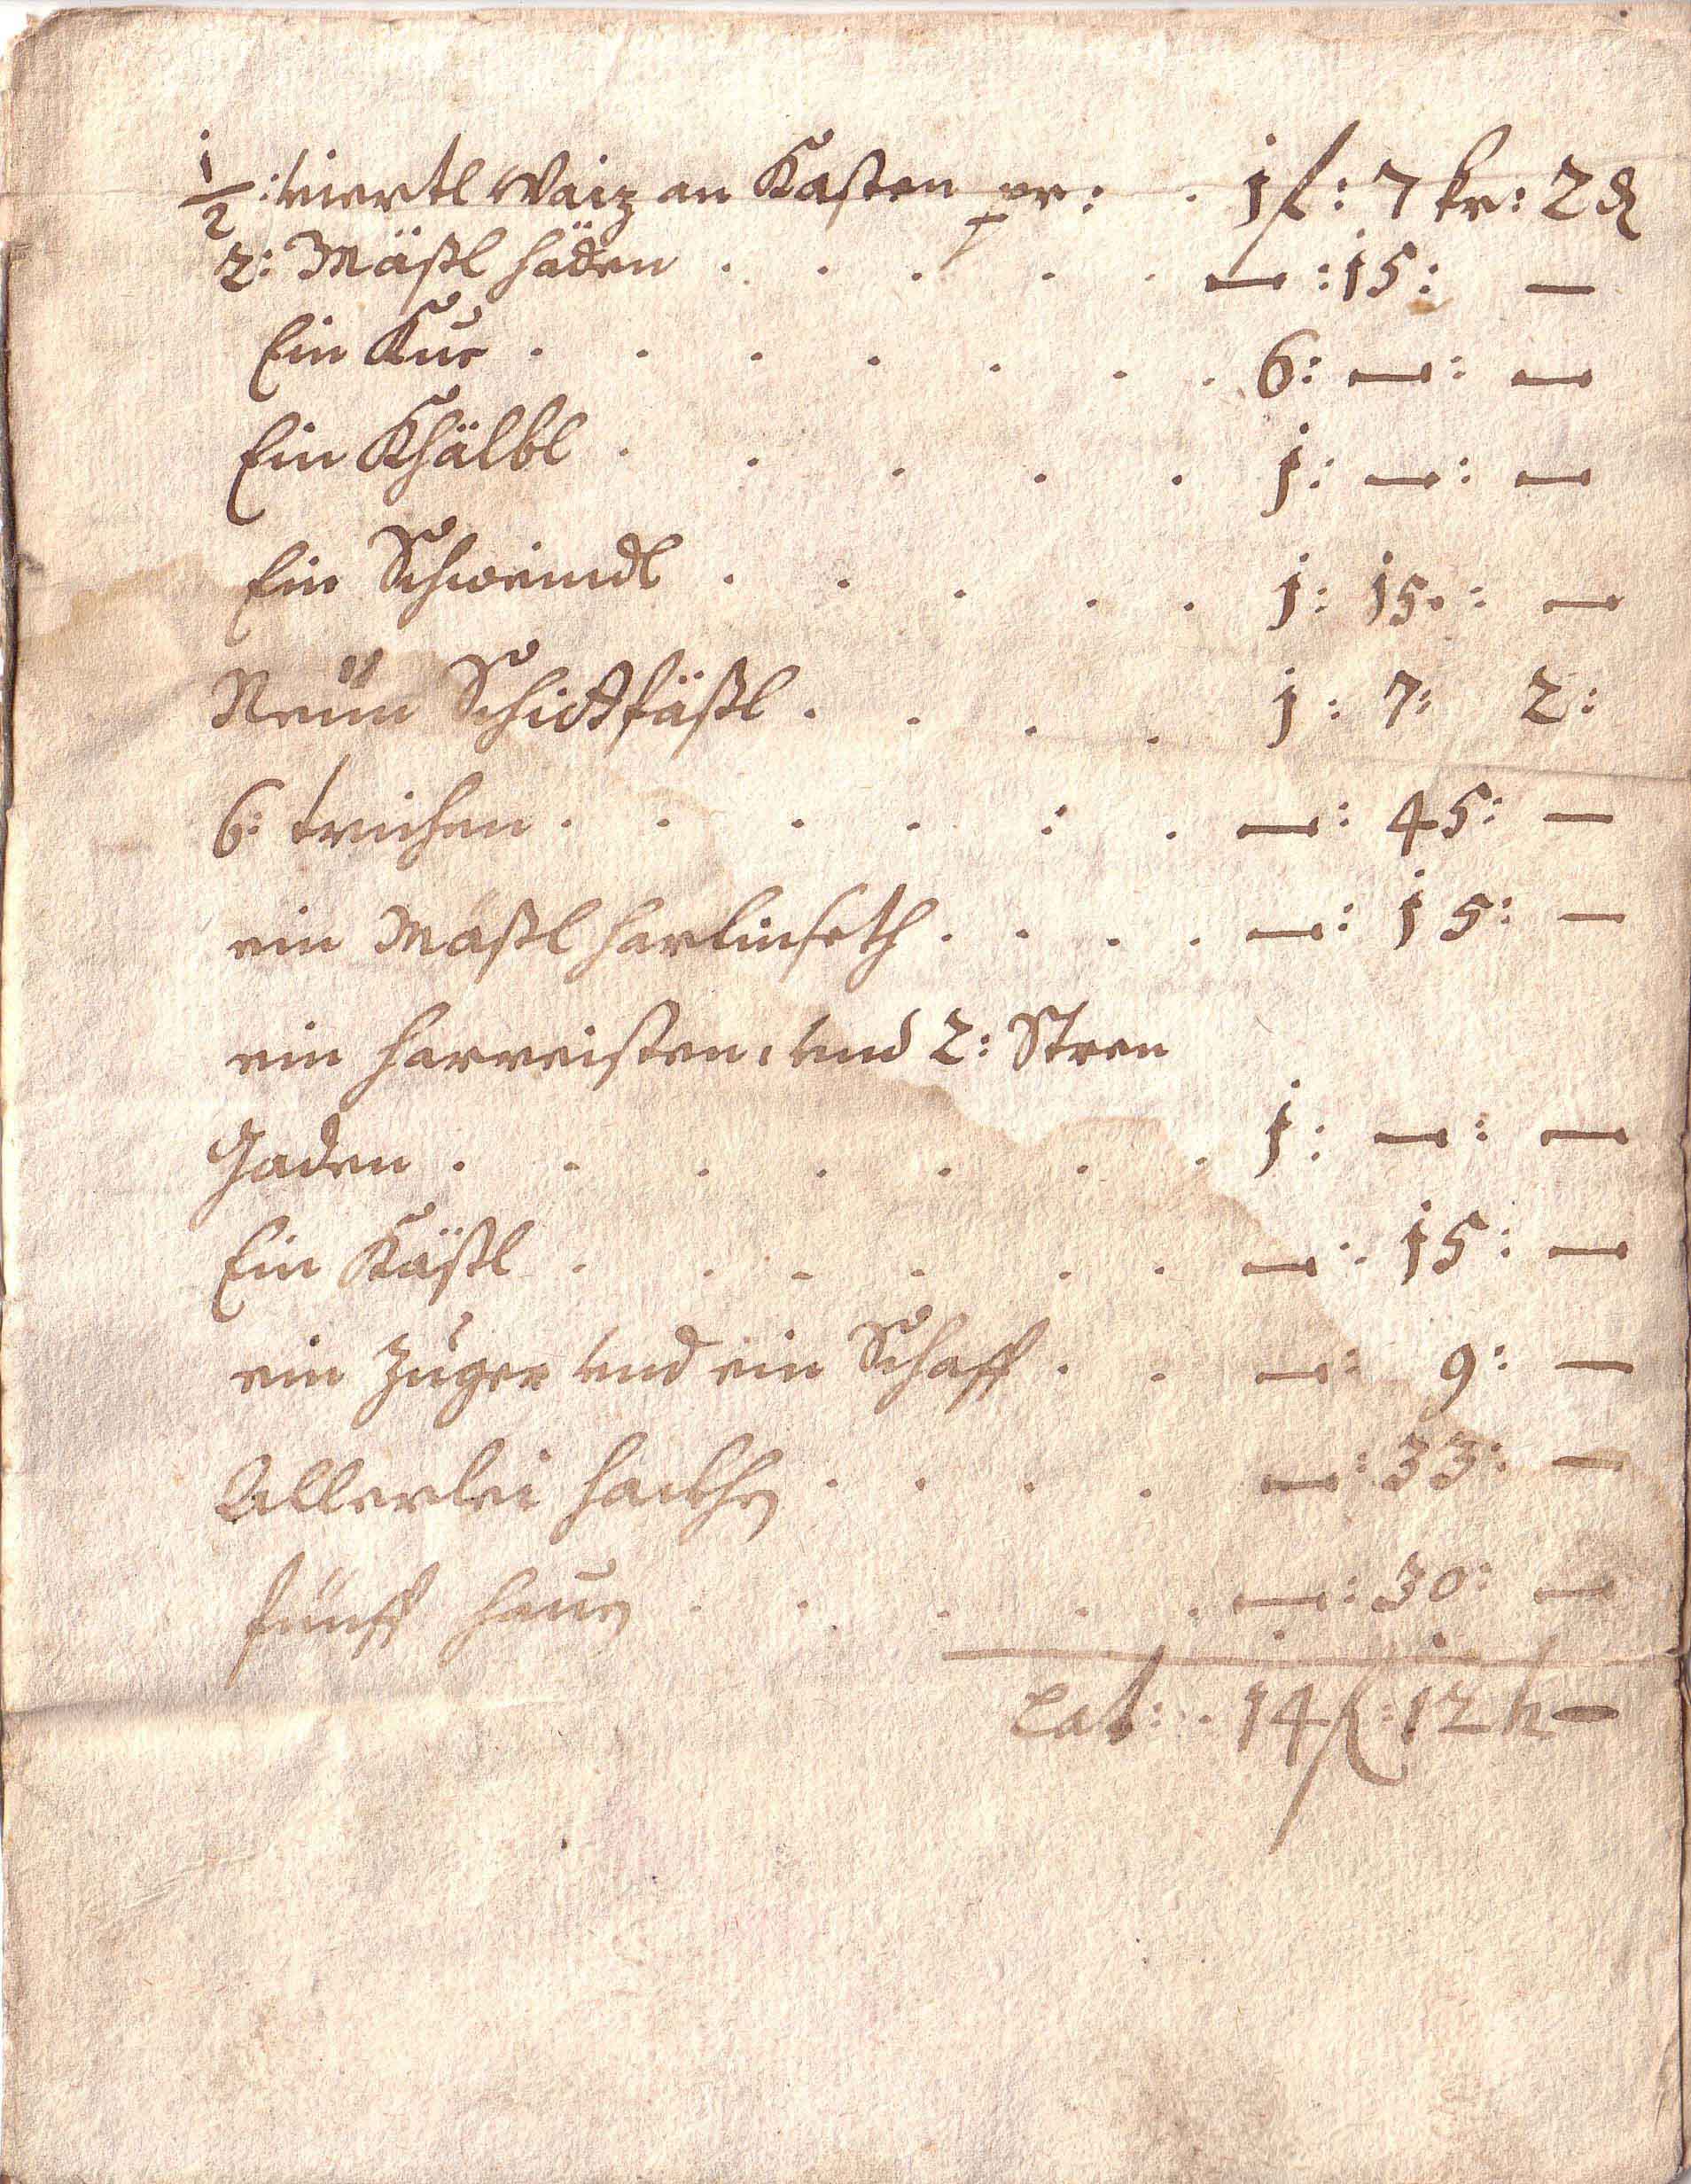 1/2: viertl Waiz an Kasten pr: . 1 f: 7 kr: 2 ₰
2: Mäßl häden . . . . . — : 15: —
Ein Kue . . . . . . . 6: — : —
Ein Khälbl . . . . . 1: — : —
Ein Schweindl . . . . . 1: 15. : —
Neün Schidtfäßl . . . . 1: 7: 2:
6: truhen . . . . : . — : 45: —
ein Mäßl harlinseth . . . . — : 15: —
ein harreisten, und 2: Stren
Gaden . . . . . . . 1: — : —
Ein Kästl . . . . . . — : 15: —
ein Zuger und ein Schaff . . — : 9: —
Allerlei hackhen . . . . — : 33: —
fünff hauen . . . . . — : 30: —
Lat: . 14 f: 12 k —